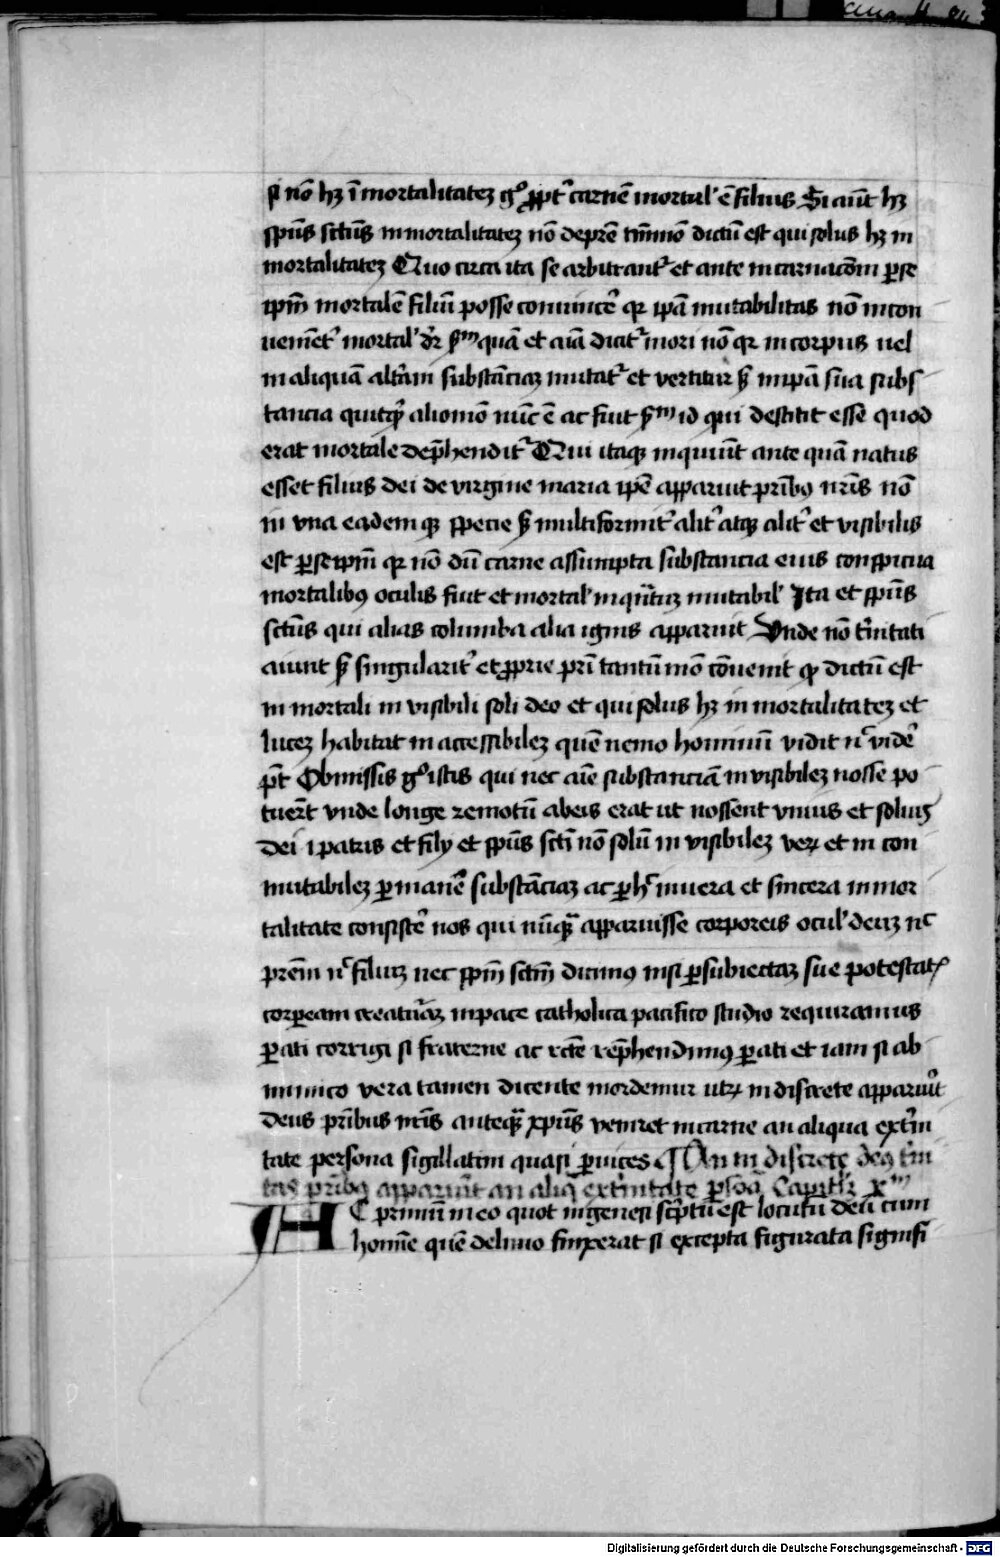 si nō hꝫ ī mortalitateꝫ gͦ ꝓpt̉ carnē mortal̉ ē filius Si aūt hꝫ
spūs sctūs inmortalitateꝫ nō de p̄re tm̄mō dictū est qui solus hꝫ in
mortalitateꝫ Quo circa ita se arbitrant̉ et ante incarnacōm ꝑ se
ip̄m mortalē filiū posse conuincēr qꝛ ip̄a mutabilitas nō incon
uenient̉ mortal̉ dr̄ sᵐ quā et aīa dicit̉ mori nō qꝛ in corpus uel
in aliquā altr̄am substāciaꝫ mutat̉ et vertitur sꝫ inip̄a sua subs
tancia quitq̄ꝫ aliomō nūc ē ac fuit sᵐ id qui destitit esse quod
erat mortale dep̄hendit̉ Qui itaqꝫ inquiūt ante quā natus
esset filius dei de virgine maria ip̄e apparuit prībꝯ nr̄is nō
in vna eademqꝫ specie sꝫ multiformit̉ alit̉ atqꝫ alit̉ et visibilis
est ꝑ seip̄m qꝛ nō dū carne assumpta substancia eius conspicua
mortalibꝯ oculis fuit et mortal̉ inq̄ntuꝫ mutabil̉ Ita et spūs
sctūs qui alias columba alia ignis apparuit Vnde nō tr̄initati
aiunt sꝫ singularit̉ et ꝓprie pr̄i tantū mō cōuenit qꝫ dictū est
in mortali in visibili soli deo et qui solus hꝫ in mortalitateꝫ et
luceꝫ habitat in accessibileꝫ quē nemo hominū vidit nͨ vidēr
pt̄ Obmissis gͦ istis qui nec aīe substanciā in visibileꝫ nosse po
tuert̄ vnde longe remotū ab eis erat ut nossent vnius et solius
dei i patris et filij et spūs sctī nō solū in visibileꝫ veꝝ et in con
mutabileꝫ ꝑmanēr substāciaꝫ ac ꝑ hͨ in uera et sincera inmor
talitate consistēr nos qui nūq̄ꝫ apparuisse corporeis ocul̉ deuꝫ nͨ
prēm nͨ filiuꝫ nec spm̄ sctm̄ dicimꝯ nisi ꝑ subiectaꝫ sue potestati
corꝑeam creatur̄aꝫ in pace catholica pacifico studio requiramus
ꝑati corrigi si fraterne ac rcte rep̄hendimꝯ ꝑati et iam si ab
inimico vera tamen dicente mordemur utꝝ in discrete apparuūt
deus prībus nr̄is anteq̄ꝫ xpūs veniret in carne an aliqua ex tr̄ini
tate persona sigillatim quasi ꝑ uices ¶ An in discrete deꝯ tr̄ini
tas prībꝯ apparuūt an aliq̄ ex tr̄initate ꝑsōa Capitlꝫ xᵐ
AC primū in eo quot in genesi scptū est locutū deū cum
homīe quē de limo finxerat si excepta figurata signifi
Digitalisierung gefördert durch die Deutsche Forschungsgemeinschaft - DFG